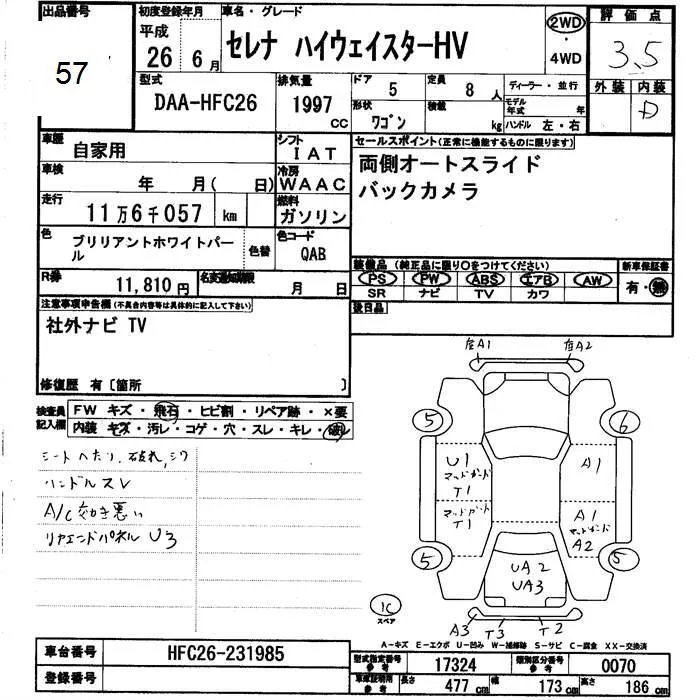 出品番号
57
初度登録年月
平成
26 6月
車名・グレード
セレナ ハイウェイスターHV
2WD
・
4WD
評価点
3.5
外装 内装
D
型式
DAA-HFC26
排気量
1997
CC
ドア 5
定員 8 人
形状
ワゴン
積載
kg
ディーラー・並行
モデル年式 年
ハンドル 左・右
車歴
自家用
シフト
IAT
車検
年 月(日)
冷房
WAAC
走行
11万6千057 km
燃料
ガソリン
色
ブリリアントホワイトパール
色替
色コード
QAB
R券
11,810 円
名変通知期限
月 日
セールスポイント(正常に機能するものに限ります)
両側オートスライド
バックカメラ
装備品(純正品に限り○をつけてください)
PS PW ABS エアB AW
SR ナビ TV カワ
新車保証書
有・無
後日品
注意事項申告欄(不具合内容等は具体的に記入して下さい)
社外ナビ TV
修復歴 有〔箇所 〕
検査員記入欄
FW キズ・飛石・ヒビ割・リペア跡・×要
内装 キズ・汚レ・コゲ・穴・スレ・キレ・破レ
シートヘたり、破れ、シワ
ハンドルスレ
A/C 効き悪い
リヤエンドパネル U3
A1
A2
5
6
U1
マッドガード
T1
マッドガード
T1
A1
A1
マッドガード
A2
5
5
UA2
UA3
IC
スペア
A3 T3 T2
A-キズ E-エクボ U-凹み W-補修跡 S-サビ C-腐食 XX-交換済
車台番号
HFC26-231985
登録番号
型式指定番号
参考
17324
類別区分番号
参考
0070
車庫証明用
参考
長さ 477 cm
幅 173 cm
高さ 186 cm